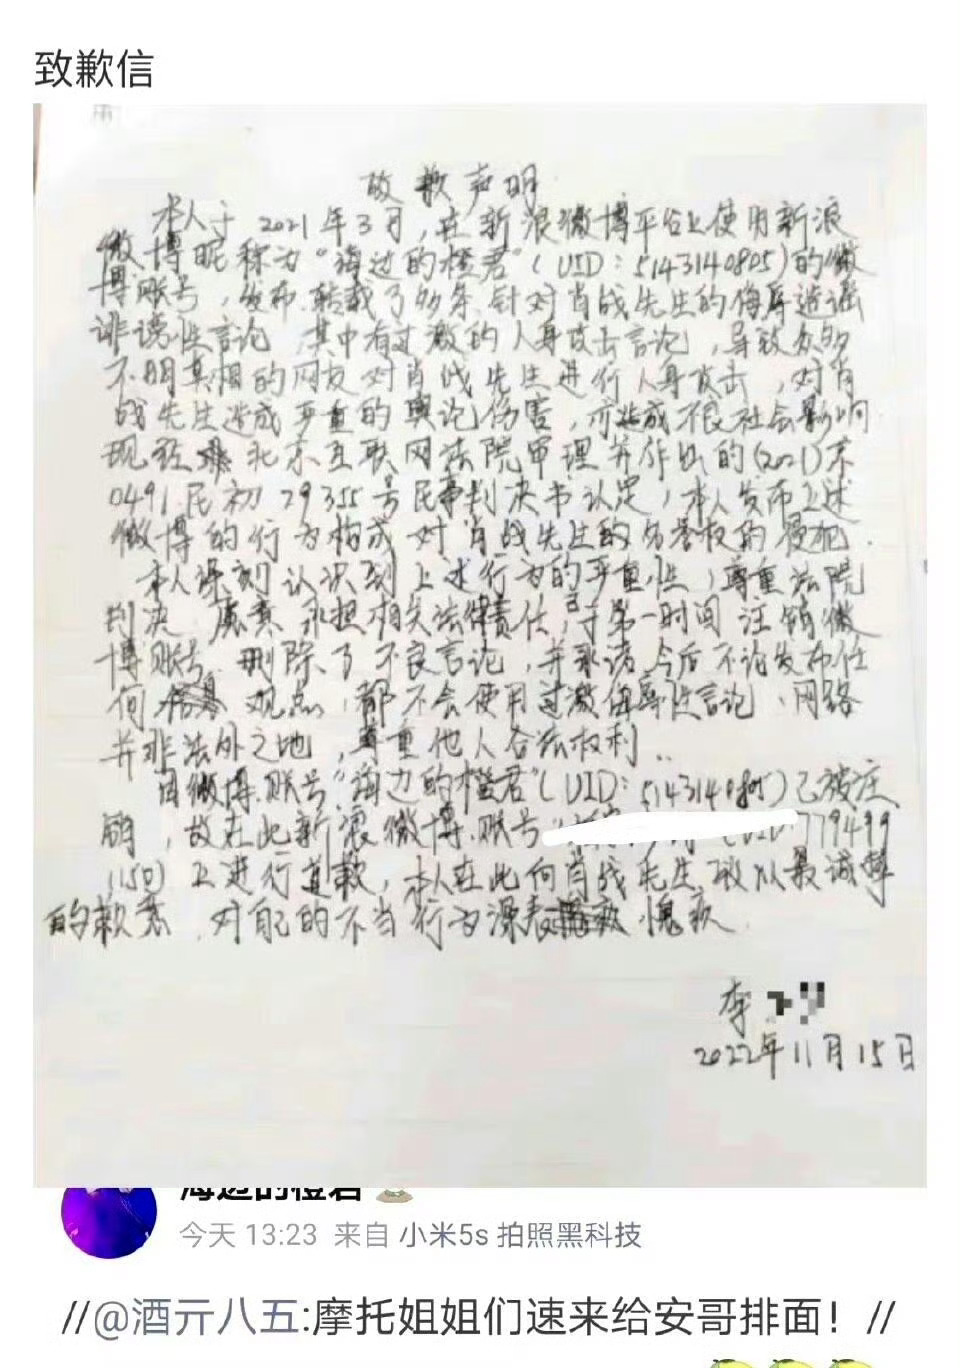 致歉信
致歉声明
本人于2021年3月，在新浪微博平台上使用新浪
微博昵称为“海边的橙君”（UID：5143140805)的微
博账号，发布、转载了多条针对肖战先生的侮辱造谣
诽谤性言论，其中有过激的人身攻击言论，导致众多
不明真相的网友对肖战先生进行人身攻击，对肖
战先生造成严重的舆论伤害，亦造成不良社会影响
现经北京互联网法院审理并作出的(2021)京
0491民初29355号民事判决书认定，本人发布上述
微博的行为构成对肖战先生的名誉权的侵犯.
本人深刻认识到上述行为的严重性，尊重法院
判决 愿意承担相关法律责任，已于第一时间注销微
博账号，删除了不良言论，并承诺今后不论发布任
何 观点，都不会使用过激侮辱性言论、网络
并非法外之地，尊重他人合法权利..
因微博账号“海边的橙君”（UID：5143140805)已被注
销，故在此新浪微博账号“ 779499
1150）上进行道歉，本人在此向肖战先生致以最诚挚
的歉意，对自己的不当行为深表 愧疚.
李
2022年11月15日
海边的橙君
今天 13:23 来自 小米5s 拍照黑科技
//@酒亓八五:摩托姐姐们速来给安哥排面！//